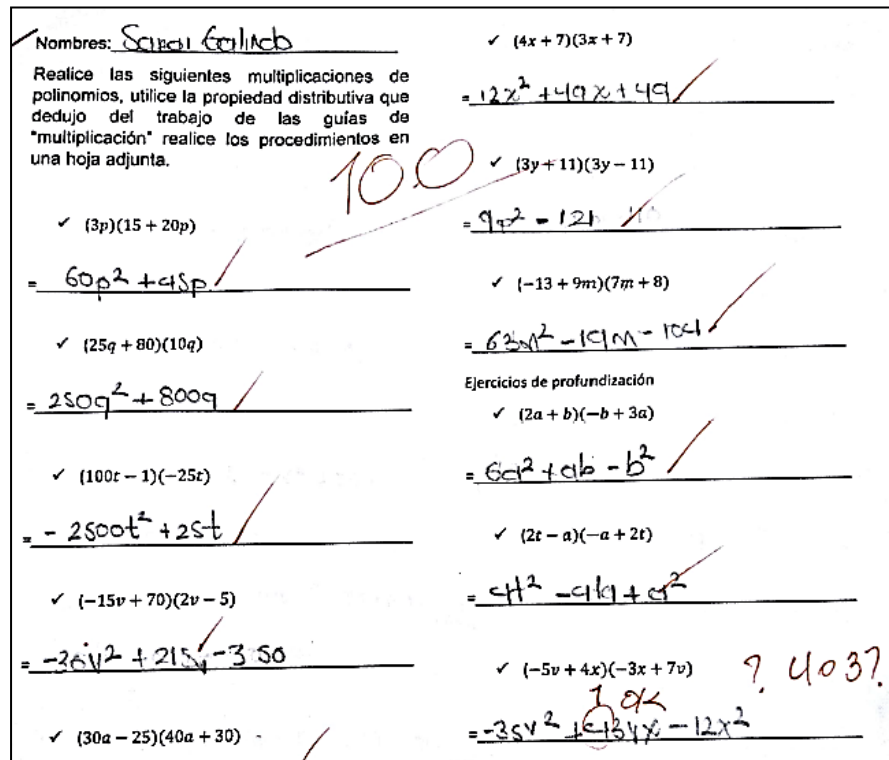 Nombres: Sarai Galindo
Realice las siguientes multiplicaciones de
polinomios, utilice la propiedad distributiva que
dedujo del trabajo de las guías de
"multiplicación" realice los procedimientos en
una hoja adjunta.
10.0
✓ (3p)(15 + 20p)
= 60p² + 45p
✓ (25q + 80)(10q)
= 250q² + 800q
✓ (100t − 1)(−25t)
= - 2500t² + 25t
✓ (−15v + 70)(2v − 5)
= -30v² + 215v - 350
✓ (30a − 25)(40a + 30)
✓ (4x + 7)(3x + 7)
= 12x² + 49x + 49
✓ (3y + 11)(3y − 11)
= 9y² - 121
✓ (−13 + 9m)(7m + 8)
= 63m² - 19m - 104
Ejercicios de profundización
✓ (2a + b)(−b + 3a)
= 6a² + ab - b²
✓ (2t − a)(−a + 2t)
= 4t² - 4ta + a²
✓ (−5v + 4x)(−3x + 7v)
? 4 o 3?
ok
= -35v² + 43vx - 12x²